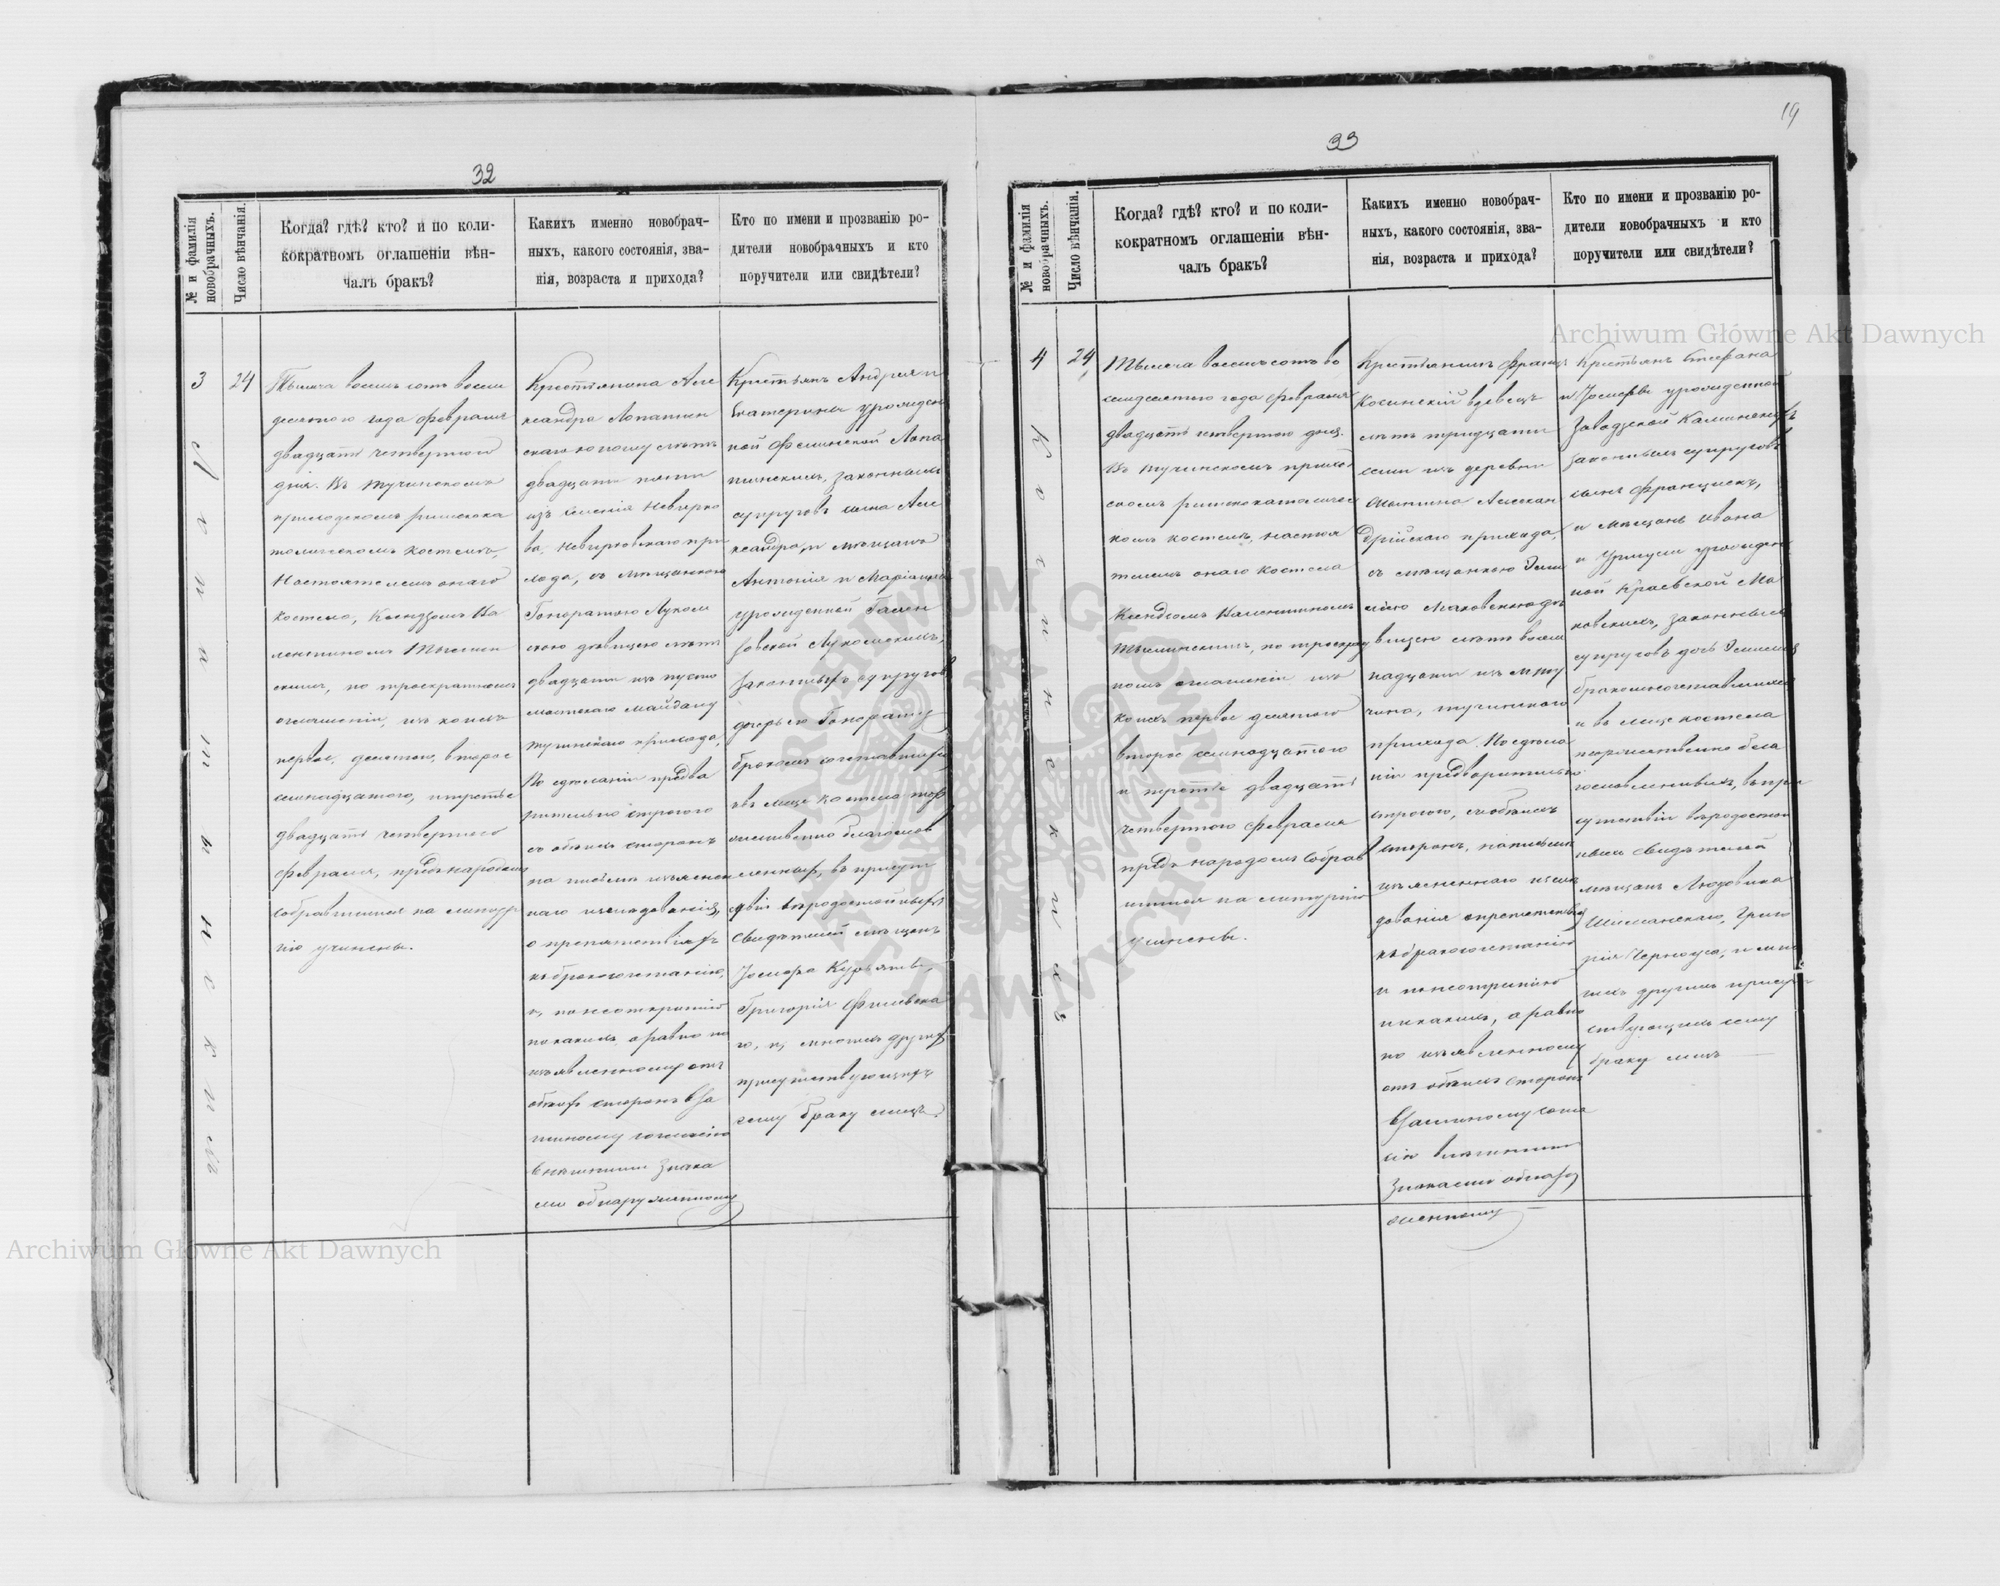 32
№ и фамилія новобрачныхъ.
Число вѣнчанія.
Когда? гдѣ? кто? и по коли-
кократномъ оглашеніи вѣн-
чалъ бракъ?
Какихъ именно новобрач-
ныхъ, какого состоянія, зва-
нія, возраста и прихода?
Кто по имени и прозванію ро-
дители новобрачныхъ и кто
поручители или свидѣтели?
3
24
Тысяча восемь сотъ восемь
десятого года февраля
двадцать четвертого
дня. Въ Тучинскомъ
приходскомъ римскока
толическомъ костелѣ,
Настоятелемъ онаго
костела, Ксендзомъ Ва
лентиномъ
по троекратномъ
оглашеніи, изъ коихъ
первое, десятого, второе
семнадцатого, и третье
двадцать четвертого
февраля, предъ народомъ
собравшимся на литур
гію учинены.
Крестьянина Але
ксандра Лопатин
скаго юношу лѣтъ
двадцати пяти
изъ имѣнія Невирко
ва, Невирковскаго при
хода, съ мѣщанкою
Гоноратою Луком
скою дѣвицею лѣтъ
двадцати изъ пусто
майдану
Тучинскаго прихода,
По сдѣланіи предва
рительно строгого
съ обѣихъ сторонъ
на письмѣ изъяснен
наго изслѣдованія,
о препятствіяхъ
къ бракосочетанію,
и, по неоткрытію
никакихъ, а равно по
изъявленному отъ
обѣихъ сторонъ вза
имному согласію
внѣшними знака
ми обнаруженному
Крестьянъ Андрея и
Екатерины урожден
ной Фелинской Лопа
тинскихъ, законныхъ
супруговъ сына Але
ксандра, и мѣщанъ
Антонія и Маріанны
урожденной
Лукомскихъ,
законныхъ супруговъ
дочерью Гонорату
бракомъ сочетавшихъ,
и въ лицѣ костела тор
жественно благослов
леннахъ, въ присут
ствіи вѣродостойныхъ
Свидѣтелей мѣщанъ
Іосифа
Григорія Филевска
го, и, многихъ другихъ
присутствующихъ
сему браку лицъ.
Лопатинскихъ
19
33
№ и фамилія новобрачныхъ.
Число вѣнчанія.
Когда? гдѣ? кто? и по коли-
кократномъ оглашеніи вѣн-
чалъ бракъ?
Какихъ именно новобрач-
ныхъ, какого состоянія, зва-
нія, возраста и прихода?
Кто по имени и прозванію ро-
дители новобрачныхъ и кто
поручители или свидѣтели?
4
24
Тысяча восемьсотъ во
семдесятого года февраля
двадцать четвертого дня.
Въ Тучинскомъ приход
скомъ римскокатоличес
комъ костелѣ, настоя
телемъ онаго костела
Ксендзомъ Валентиномъ
по троекрат
номъ оглашеніи изъ
коихъ первое десятого
второе семнадцатого
и третье двадцать
четвертого февраля
предъ народомъ собрав
шимся на литургію
учинены.
Крестьянинъ Францъ
вдовецъ
лѣтъ тридцати
семи изъ деревни
Алексан
дрійскаго прихода,
съ мѣщанкою Эми
лію Маковскаю дѣ
вицею лѣтъ восем
надцати изъ м. Ту
чина, Тучинскаго
прихода. По сдѣла
ніи предварительно
строгого, съ обѣихъ
сторонъ, на письмѣ
изъясненнаго изслѣ
дованія о препятствіяхъ
къ бракосочетанію
и по неоткрытію
никакихъ, а равно
по изъявленному
отъ обѣихъ сторонъ
взаимному согла
сію внѣшними
знаками обнару
женному
Крестьянъ Стефана
и Іосифы урожденной
Завадской
законныхъ супруговъ
сынъ Францискъ,
и мѣщанъ Ивана
и Урсулы урожден
ной Краевской Ма
ковскихъ, законныхъ
супруговъ дочь Эмилія
бракомъ сочетавшихся
и въ лицѣ костела
торжественно бла
гословленныхъ, въ при
сутствіи вѣродостой
ныхъ Свидѣтелей
мѣщанъ Людовика
Шиманскаго, Григо
рія Черноуса, и мно
гихъ другихъ присут
ствующихъ сему
браку лицъ
Archiwum Główne Akt Dawnych
Archiwum Główne Akt Dawnych
ARCHIWUM GŁÓWNE AKT DAWNYCH